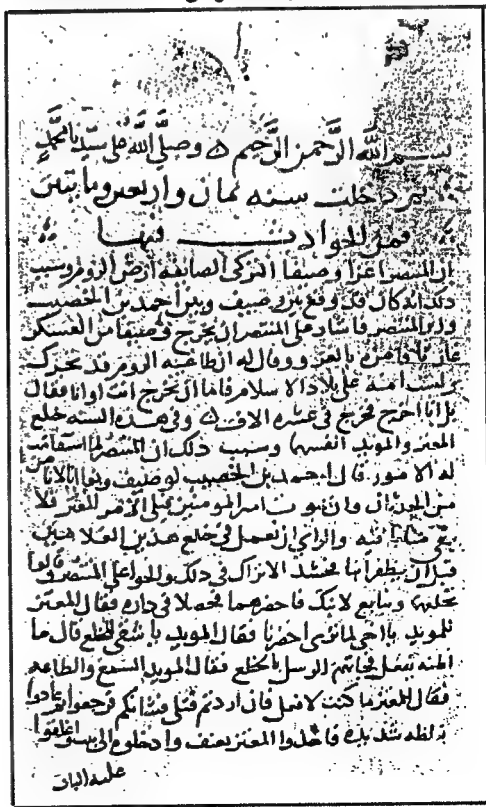 بسم الله الرحمن الرحيم وصلى الله على سيدنا محمد
ثم دخلت سنه ثمان واربعين ومايتين
فمن الحوادث فيها
ان المنتصر اغزا وصيفا التركي الصائفه ارض الروم وسبب
ذلك انه كان قد وقع بين وصيف وبين احمد بن الخصيب
وزير المنتصر فاشار على المنتصر ان يخرج وصيفا من العسكر
غازيا فامره بالغزو وقال له ان طاغيه الروم قد تحرك
ولست امنه على بلاد الاسلام فاما ان تخرج انت او انا فقال
بل انا اخرج فخرج في عشره الاف وفي هذه السنه خلع
المعتز والمويد انفسهما وسبب ذلك ان المنتصر لما استقامت
له الامور قال احمد بن الخصيب لوصيف وبغا انا لا نامن
من الحدثان وان يموت امير المومنين فيلي الامر المعتز فلا
يبقي منا باقيه والراي ان نعمل في خلع هذين الغلامين
قبل ان يظفرا بنا فجد الاتراك في ذلك والحوا على المنتصر وقالوا
نخلعهما ونبايع لابنك فاحضرهما فجعلا في داره فقال المعتز
للمويد يا اخي لم ترى احضرنا فقال المويد يا شقي للخلع قال ما
اظنه يفعل فجاتهم الرسل بالخلع فقال المويد السمع والطاعه
فقال المعتز ما كنت لافعل فان اردتم قتلي فشانكم فرجعوا ثم عادوا
بغلظه شديده فاخذوا المعتز بعنف وادخلوه الى بيت واغلقوا
عليه الباب